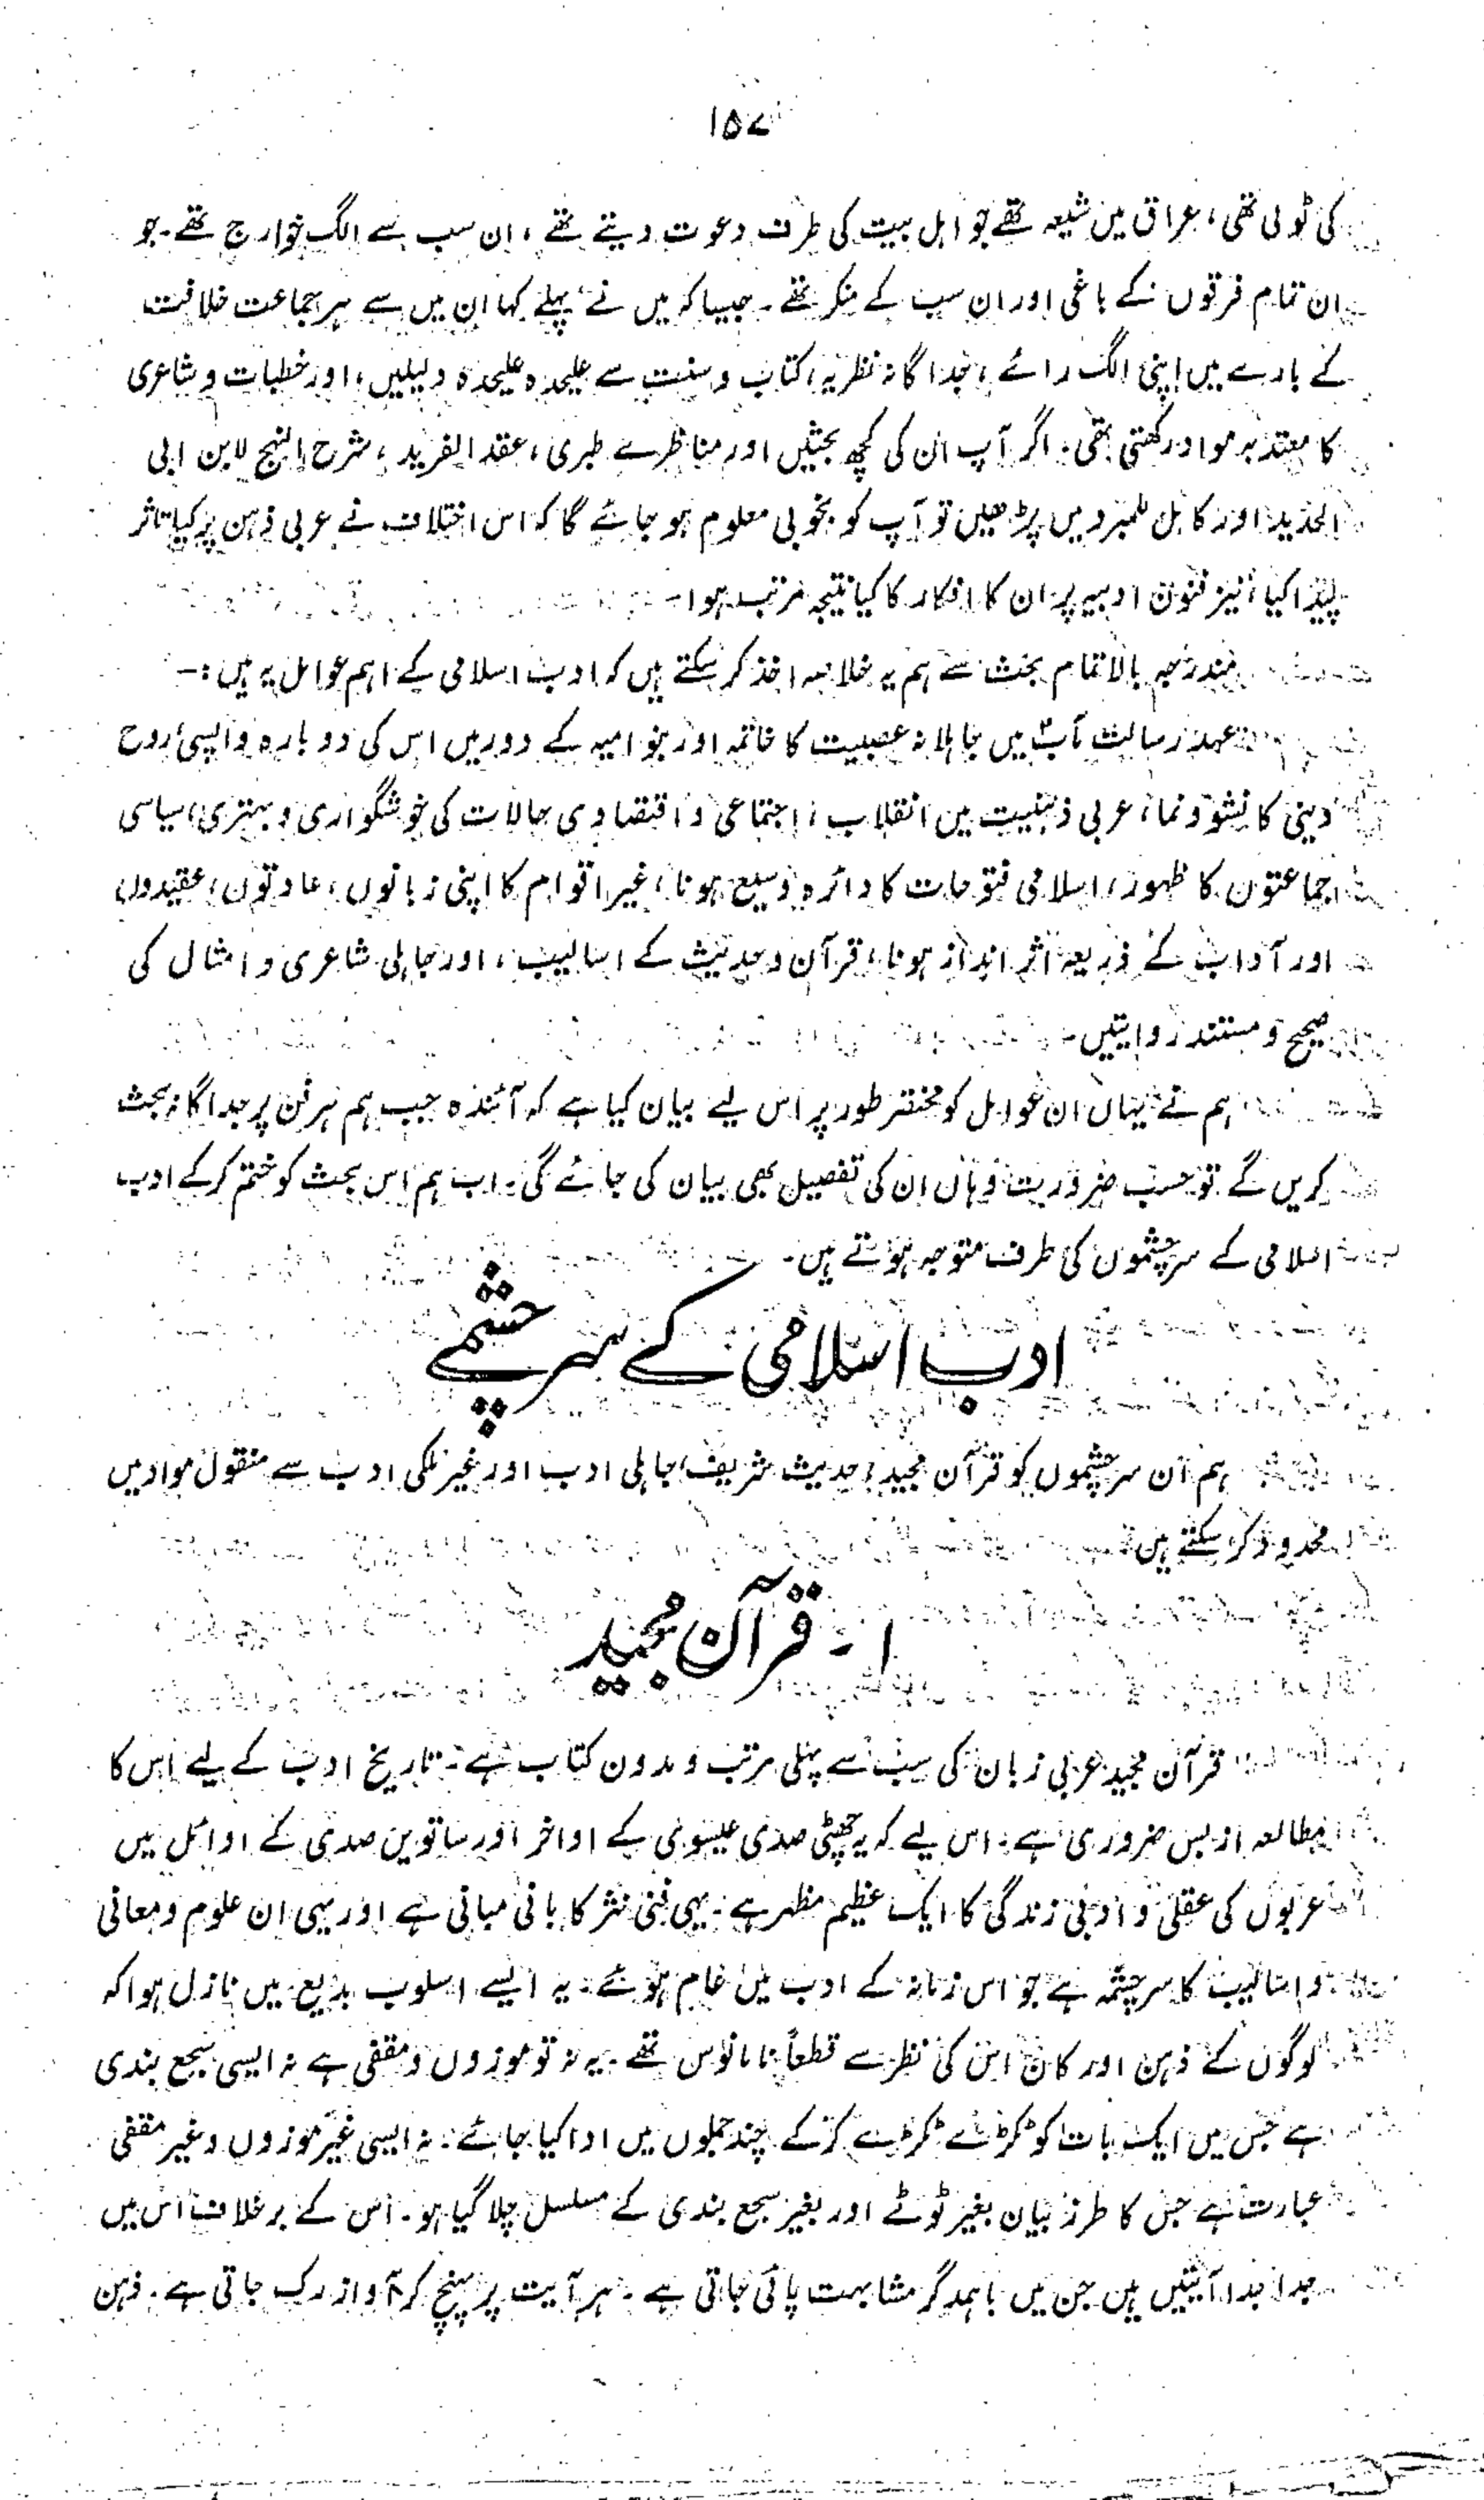 ۱۵۷
کی ٹولی تھی، عراق میں شیعہ تھے جو اہل بیت کی طرف دعوت دیتے تھے، ان سب سے الگ خوارج تھے۔ جو
ان تمام فرقوں کے باغی اور ان سب کے منکر تھے۔ جیسا کہ میں نے پہلے کہا ان میں سے ہر جماعت خلافت
کے بارے میں اپنی الگ رائے، جداگانہ نظریہ، کتاب و سنت سے علیحدہ علیحدہ دلیلیں، اور خطبات و شاعری
کا معتد بہ مواد رکھتی تھی۔ اگر آپ ان کی کچھ بحثیں اور مناظرے طبری، عقد الفرید، شرح النہج لابن ابی
الحدید اور کامل للمبرد میں پڑھیں تو آپ کو بخوبی معلوم ہو جائے گا کہ اس اختلاف نے عربی ذہن پر کیا تاثر
پیدا کیا، نیز فنون ادبیہ پر ان کا افکار کا کیا نتیجہ مرتب ہوا۔
مندرجہ بالا تمام بحث سے ہم یہ خلاصہ اخذ کر سکتے ہیں کہ ادب اسلامی کے اہم عوامل یہ ہیں:۔
عہد رسالت مآبؐ میں جاہلانہ عصبیت کا خاتمہ اور بنو امیہ کے دور میں اس کی دوبارہ واپسی، روح
دینی کا نشوونما، عربی ذہنیت میں انقلاب، اجتماعی و اقتصادی حالات کی خوشگواری و بہتری، سیاسی
جماعتوں کا ظہور، اسلامی فتوحات کا دائرہ وسیع ہونا، غیر اقوام کا اپنی زبانوں، عادتوں، عقیدوں
اور آداب کے ذریعہ اثر انداز ہونا، قرآن و حدیث کے اسالیب، اور جاہلی شاعری و امثال کی
صحیح و مستند روایتیں۔
ہم نے یہاں ان عوامل کو مختصر طور پر اس لیے بیان کیا ہے کہ آئندہ جب ہم ہر فن پر جداگانہ بحث
کریں گے تو حسب ضرورت وہاں ان کی تفصیل بھی بیان کی جائے گی۔ اب ہم اس بحث کو ختم کرکے ادب
اسلامی کے سرچشموں کی طرف متوجہ ہوتے ہیں۔
ادب اسلامی کے سرچشمے
ہم ان سرچشموں کو قرآن مجید، حدیث شریف، جاہلی ادب اور غیر ملکی ادب سے منقول مواد میں
محدود کر سکتے ہیں:
۱۔ قرآن مجید
قرآن مجید عربی زبان کی سب سے پہلی مرتب و مدون کتاب ہے۔ تاریخ ادب کے لیے اس کا
مطالعہ از بس ضروری ہے۔ اس لیے کہ یہ چھٹی صدی عیسوی کے اواخر اور ساتویں صدی کے اوائل میں
عربوں کی عقلی و ادبی زندگی کا ایک عظیم مظہر ہے۔ یہی فنی نثر کا بانی مبانی ہے اور یہی ان علوم و معانی
و اسالیب کا سرچشمہ ہے جو اس زمانہ کے ادب میں عام ہوئے۔ یہ ایسے اسلوب بدیع میں نازل ہوا کہ
لوگوں کے ذہن اور کان اس کی نظر سے قطعاً نامانوس تھے۔ یہ نہ تو موزوں و مقفی ہے نہ ایسی سجع بندی
ہے جس میں ایک بات کو ٹکڑے ٹکڑے کرکے چند جملوں میں ادا کیا جائے۔ نہ ایسی غیر موزوں و غیر مقفی
عبارت ہے جس کا طرز بیان بغیر ٹوٹے اور بغیر سجع بندی کے مسلسل چلا گیا ہو۔ اس کے برخلاف اس میں
جدا جدا آیتیں ہیں جن میں باہمدگر مشابہت پائی جاتی ہے۔ ہر آیت پر پہنچ کر آواز رک جاتی ہے۔ ذہن